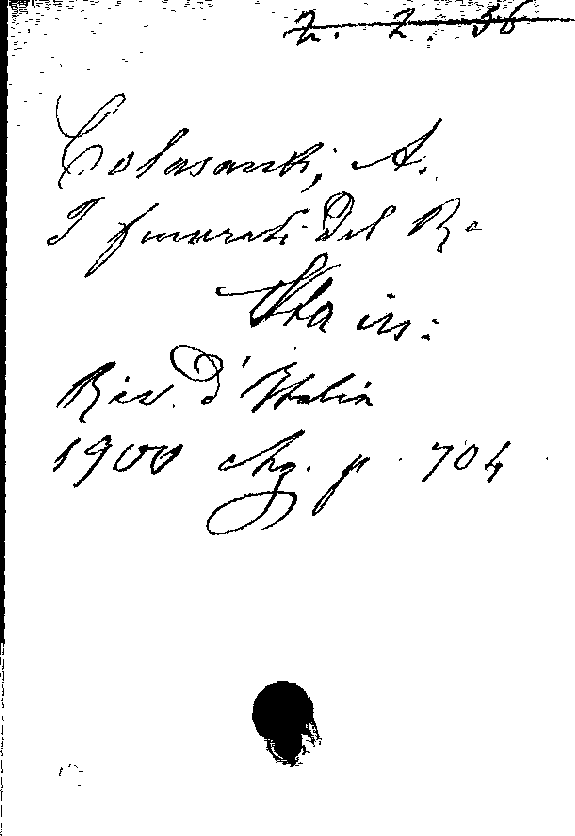 2. 2. 36
Colasanti, A.
I funerali del Re
Sta in:
Riv. d'Italia
1900 Ag. p. 704